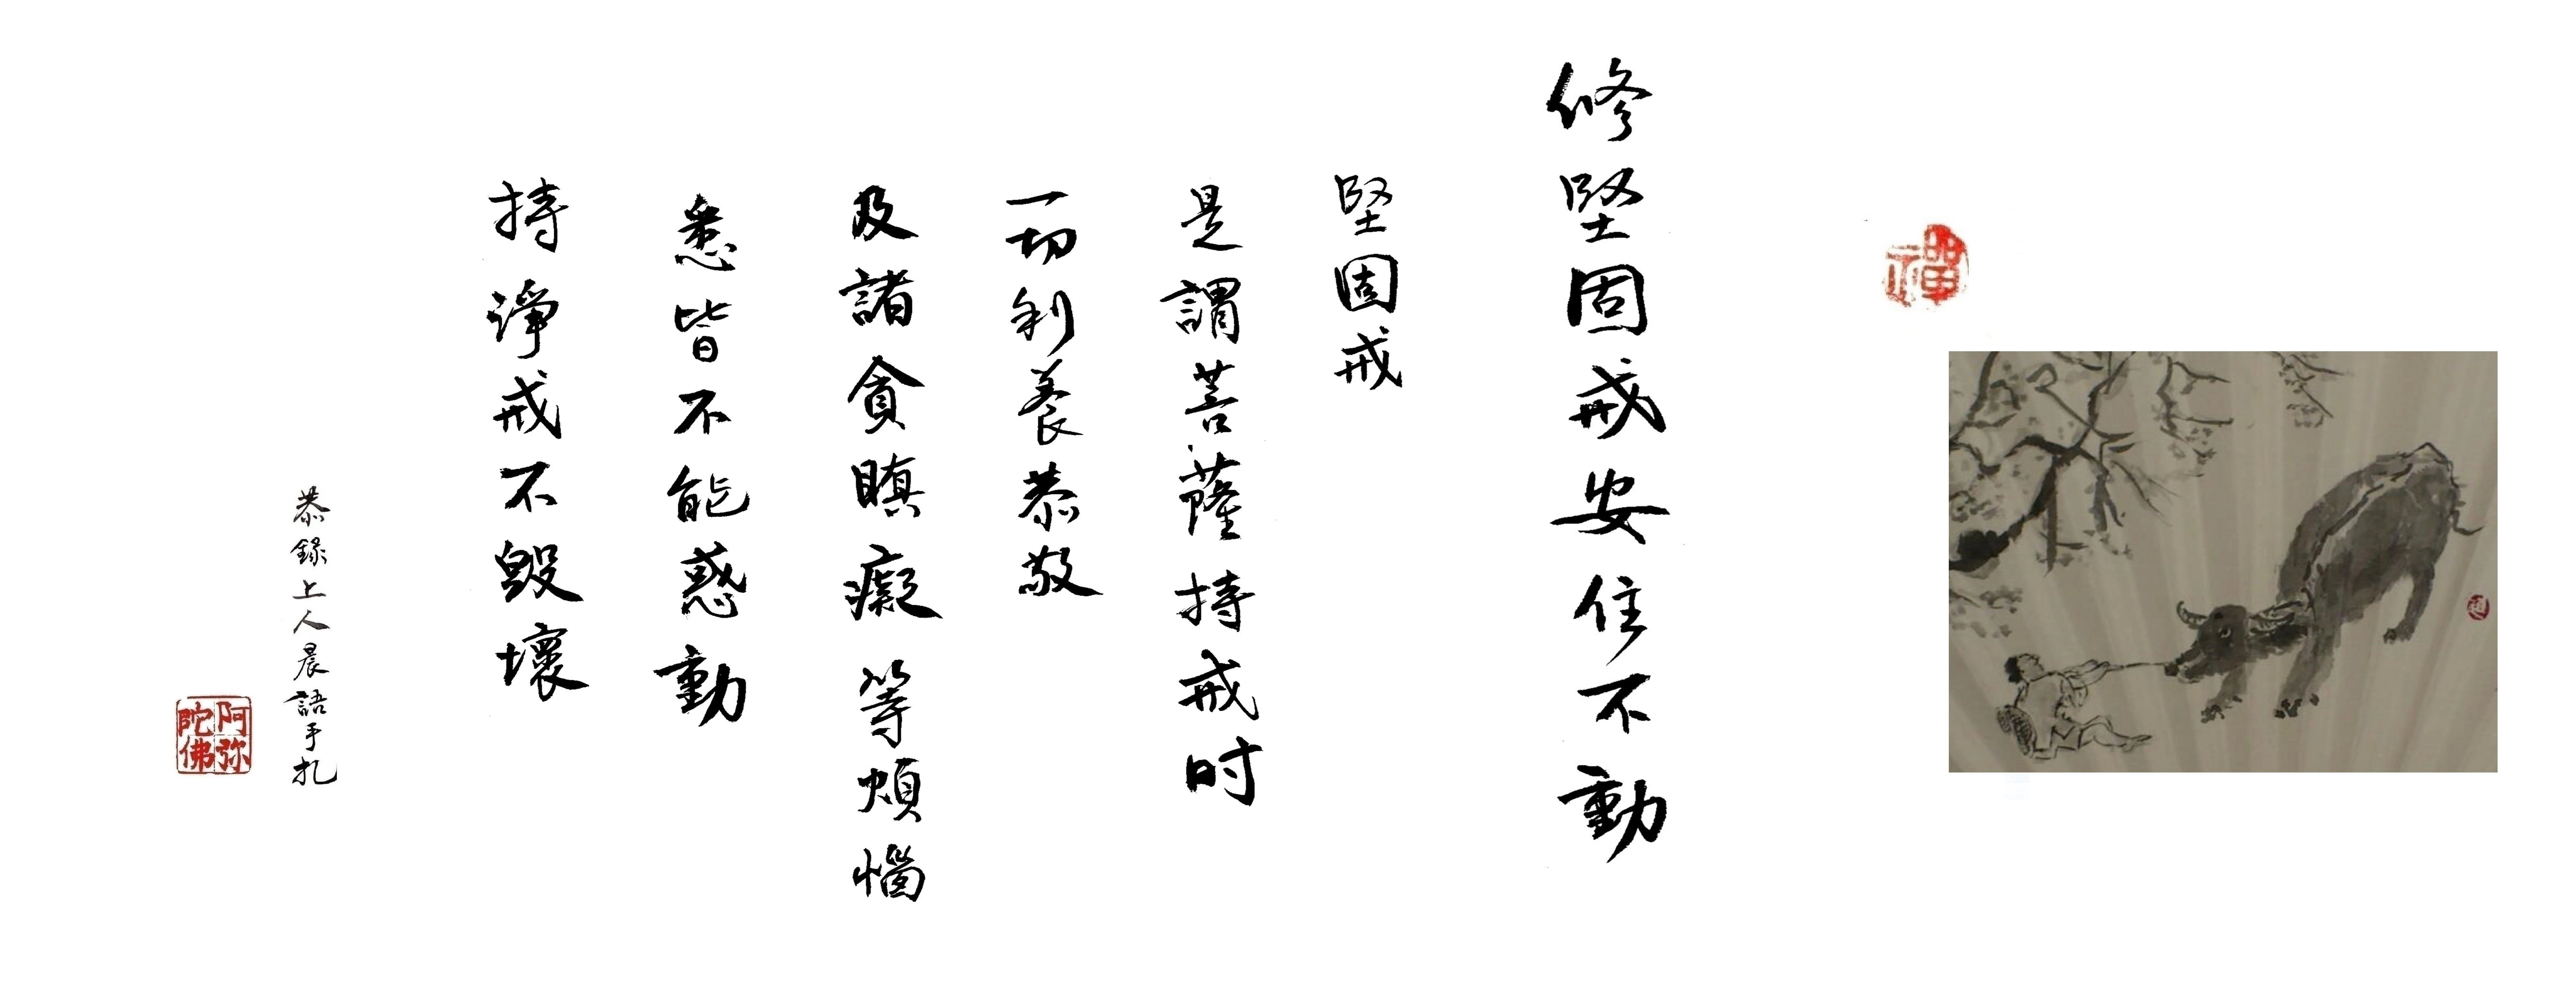 禪
修堅固戒安住不動
堅固戒
是謂菩薩持戒时
一切利養恭敬
及諸貪瞋癡等煩惱
悉皆不能惑動
持淨戒不毀壞
恭錄上人晨語手扎
阿弥
陀佛